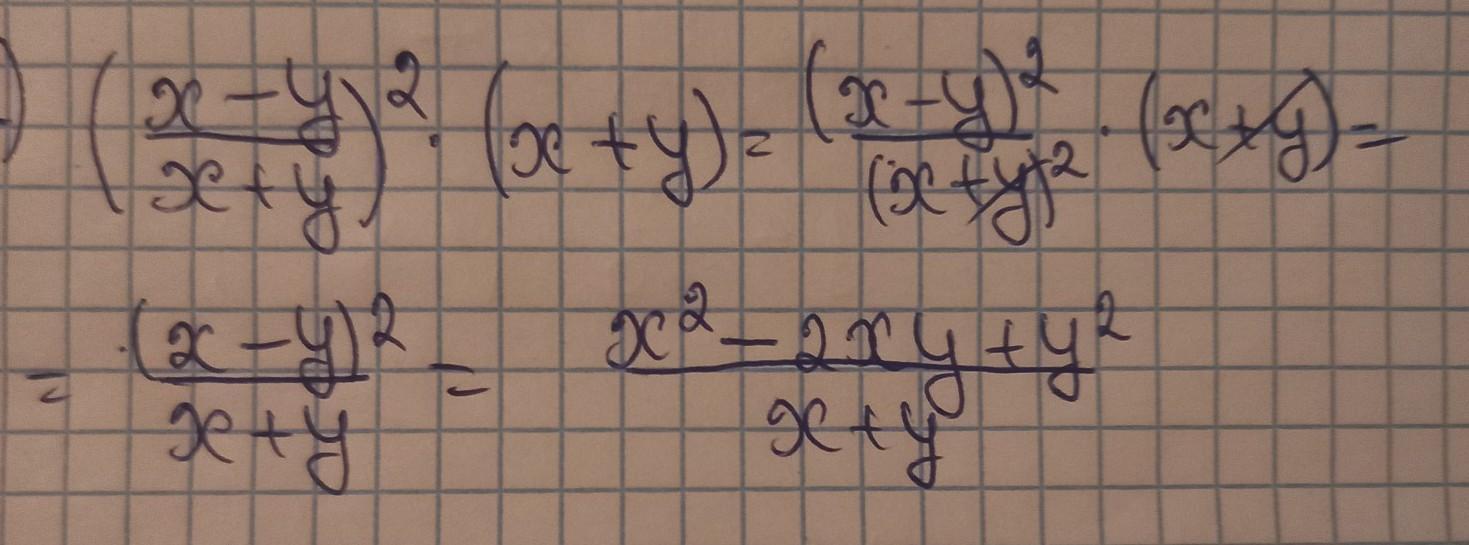 ) ((x-y)/(x+y))² · (x+y) = (x-y)²/(x+y)² · (x+y) =
= (x-y)²/(x+y) = (x²-2xy+y²)/(x+y)